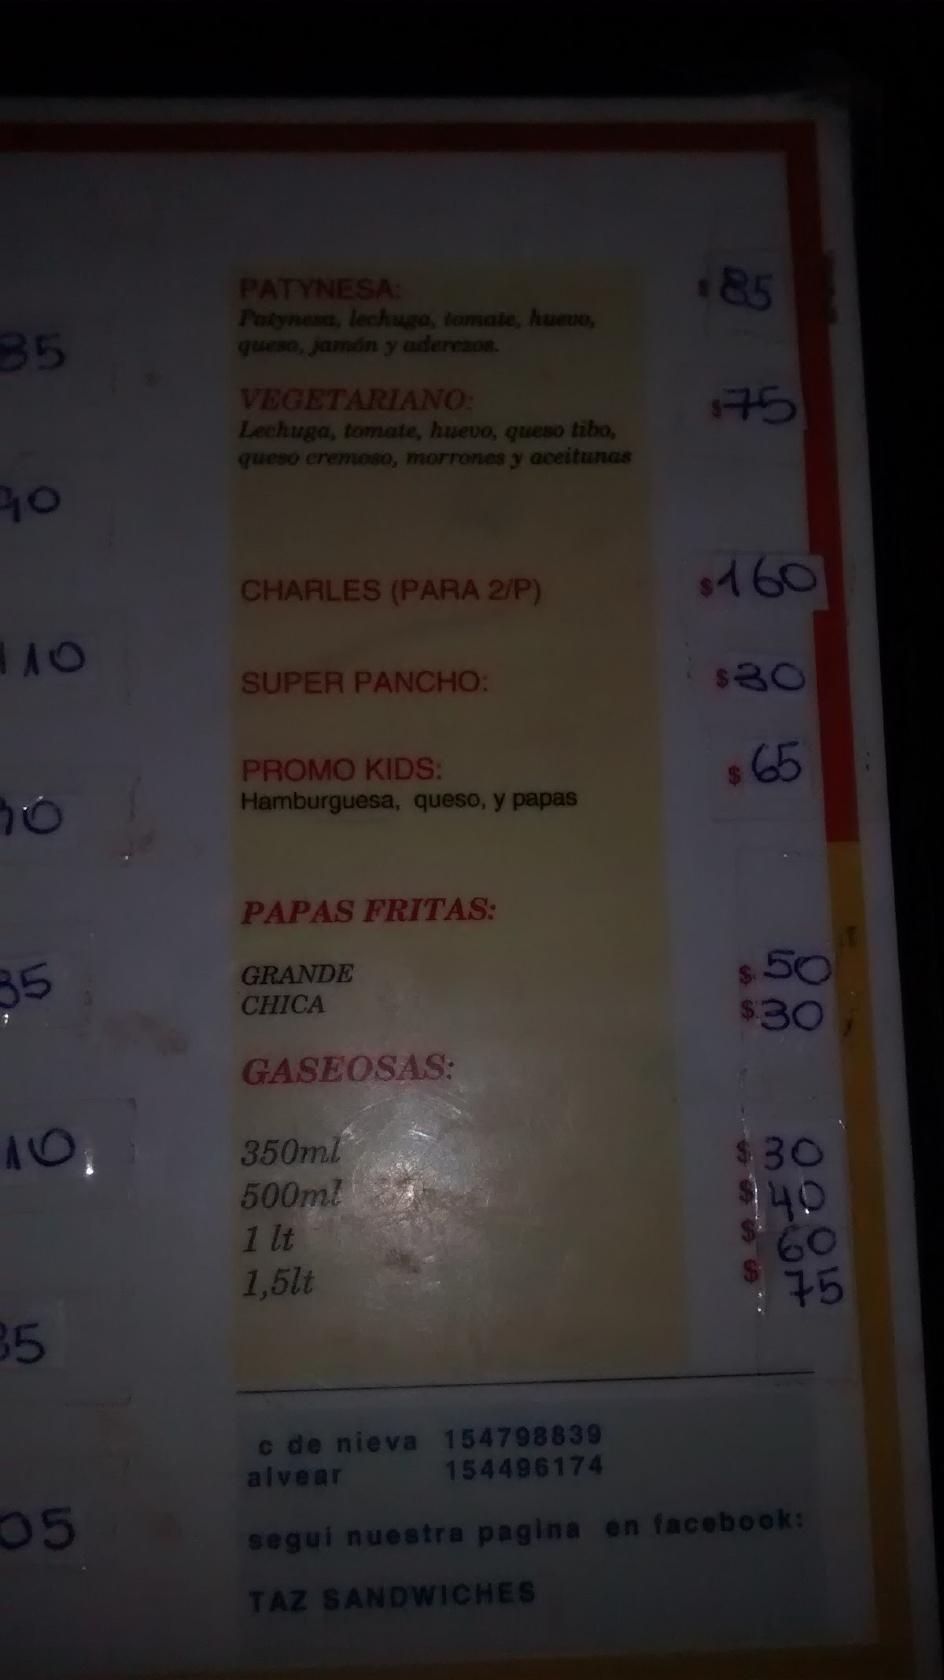 PATYNESA: $ 85
Patynesa, lechuga, tomate, huevo,
queso, jamón y aderezos.
85
VEGETARIANO: $ 75
Lechuga, tomate, huevo, queso tibo,
queso cremoso, morrones y aceitunas
90
CHARLES (PARA 2/P) $ 160
110
SUPER PANCHO: $ 30
PROMO KIDS: $ 65
Hamburguesa, queso, y papas
PAPAS FRITAS:
GRANDE $ 50
CHICA $ 30
35
GASEOSAS:
350ml $ 30
500ml $ 40
1 lt $ 60
1,5lt $ 75
c de nieva 154798839
alvear 154496174
segui nuestra pagina en facebook:
05
TAZ SANDWICHES